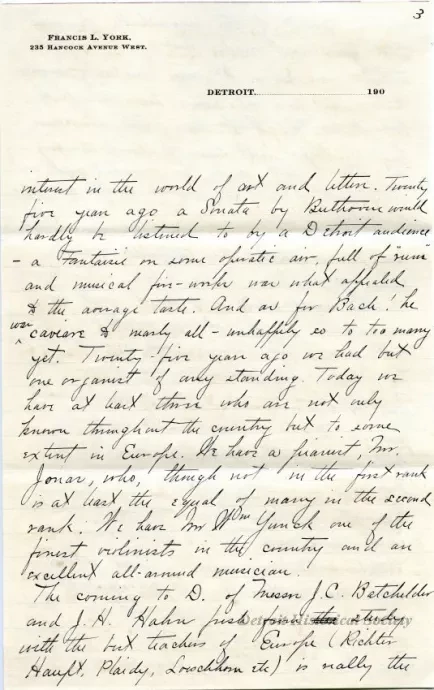 3
FRANCIS L. YORK,
235 HANCOCK AVENUE WEST.
DETROIT, 190
interest in the world of art and letters. Twenty
five years ago a Sonata by Beethoven would
hardly be listened to by a Detroit audience
- a Fantaisie on some operatic air, full of "runs"
and musical fire-works was what appealed
to the average taste. And as for Bach! he
was caviare to nearly all - unhappily so to too many
yet. Twenty-five years ago we had but
one organist of any standing. Today we
have at least three who are not only
known throughout the country but to some
extent in Europe. We have a pianist, Mr.
Jonas, who, though not in the first rank
is at least the equal of many in the second
rank. We have Mr Wm Yunck one of the
finest violinists in the country and an
excellent all-around musician.
The coming to D. of Messrs J. C. Batchelder
and J. H. Hahn just from study
with the best teachers of Europe (Richter
Haupt, Plaidy, Loeschhorn etc) is really the
Detroit Historical Society